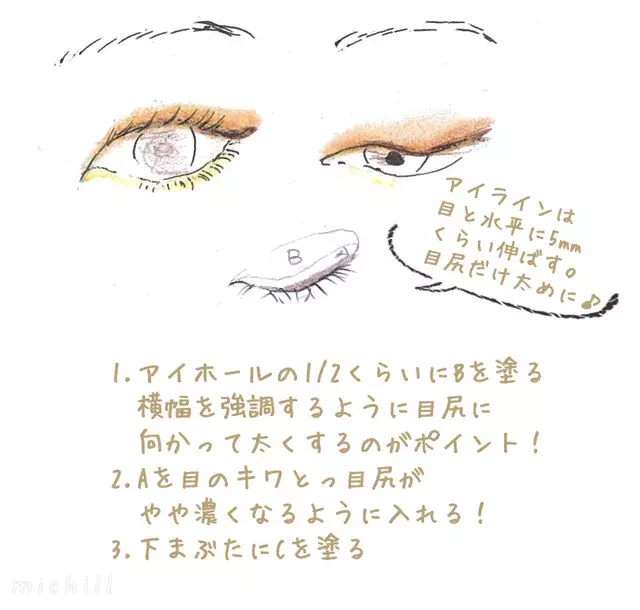 アイラインは
目と水平に5mm
くらい伸ばす。
目尻だけ太めに♪
B
A
1.アイホールの1/2くらいにBを塗る
横幅を強調するように目尻に
向かって太くするのがポイント！
2.Aを目のキワとっ目尻が
やや濃くなるように入れる！
3.下まぶたにCを塗る
michill